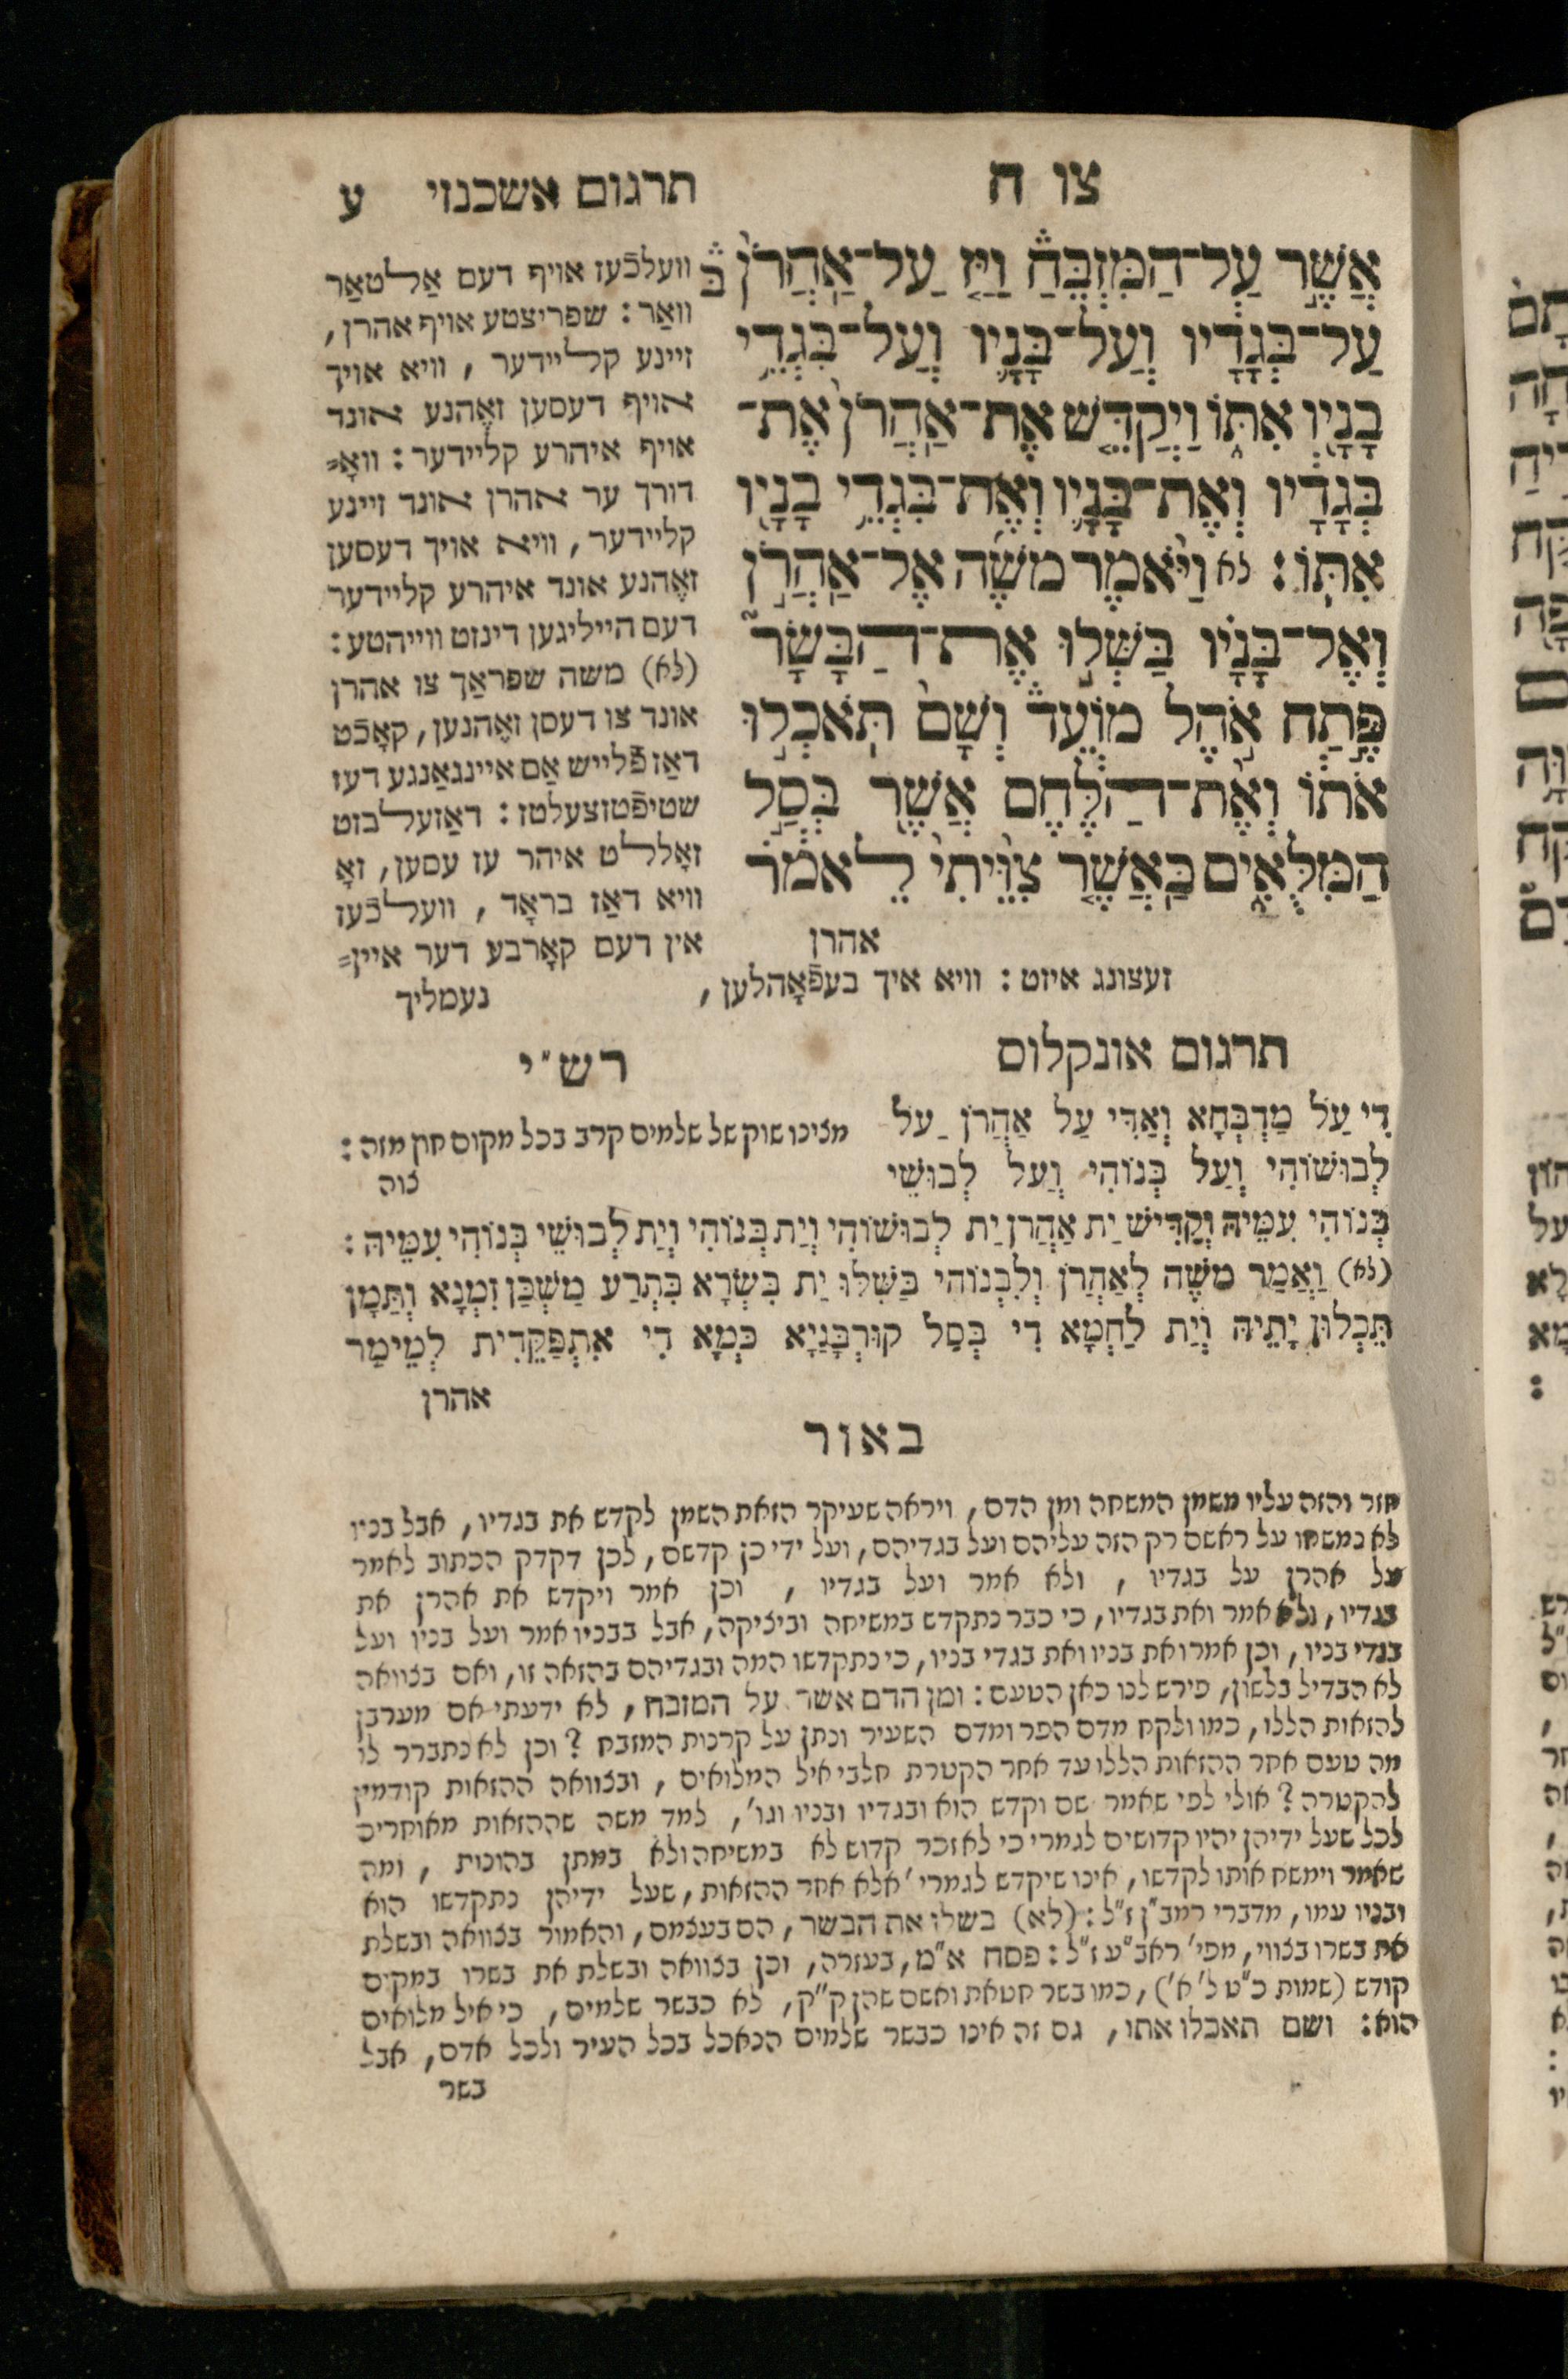 צו ח
תרגום אשכנזי ע
אֲשֶׁ֣ר עַל־הַמִּזְבֵּ֘חַ֮ וַיַּ֤ז עַֽל־אַהֲרֹן֙
עַל־בְּגָדָ֔יו וְעַל־בָּנָ֛יו וְעַל־בִּגְדֵ֥י
בָנָ֖יו אִתּ֑וֹ וַיְקַדֵּ֤שׁ אֶֽת־אַהֲרֹן֙ אֶת־
בְּגָדָ֔יו וְאֶת־בָּנָ֛יו וְאֶת־בִּגְדֵ֥י בָנָ֖יו
אִתּֽוֹ׃ לא וַיֹּ֨אמֶר מֹשֶׁ֜ה אֶל־אַהֲרֹ֣ן
וְאֶל־בָּנָ֗יו בַּשְּׁל֣וּ אֶת־הַבָּשָׂר֮
פֶּ֣תַח אֹ֣הֶל מוֹעֵד֒ וְשָׁם֙ תֹּאכְל֣וּ
אֹת֔וֹ וְאֶ֨ת־הַלֶּ֔חֶם אֲשֶׁ֖ר בְּסַ֣ל
הַמִּלֻּאִ֑ים כַּאֲשֶׁ֤ר צִוֵּ֙יתִי֙ לֵאמֹ֔ר
אהרן
וועלכֿעז אויף דעם אַלטאַר
וואַר : שפריצטע אויף אהרן,
זיינע קליידער , וויא אויך
אויף דעסען זאֶהנע אונד
אויף איהרע קליידער : וואָ=
דורך ער אהרן אונד זיינע
קליידער, וויא אויך דעסען
זאֶהנע אונד איהרע קליידער
דעם הייליגען דינזט ווייהטע :
(לא) משה שפראַך צו אהרן
אונד צו דעסן זאֶהנען, קאָכֿט
דאַז פֿלייש אַם איינגאַנגע דעז
שטיפֿטזצעלטז : דאַזעלבזט
זאָללט איהר עז עסען, זאָ
וויא דאַז בראָד , וועלכֿעז
אין דעם קאָרבע דער איין=
זעצונג איזט : וויא איך בעפֿאָהלען ,
נעמליך
תרגום אונקלוס
דִּי עַל מַדְבְּחָא וְאַדִּי עַל אַהֲרֹן עַל
לְבוּשׁוֹהִי וְעַל בְּנוֹהִי וְעַל לְבוּשֵׁי
בְּנוֹהִי עִמֵּיהּ וְקַדִּישׁ יַת אַהֲרֹן יַת לְבוּשׁוֹהִי וְיַת בְּנוֹהִי וְיַת לְבוּשֵׁי בְּנוֹהִי עִמֵּיהּ :
(לא) וַאֲמַר מֹשֶׁה לְאַהֲרֹן וְלִבְנוֹהִי בַּשִּׁלוּ יַת בִּשְׂרָא בִּתְרַע מַשְׁכַּן זִמְנָא וְתַמָּן
תֵּכְלוּן יָתֵיהּ וְיַת לַחְמָא דִּי בְּסַל קוּרְבָּנַיָּא כְּמָא דִי אִתְפַּקֵּדִית לְמֵימַר
אהרן
רש״י
מצינו שוק של שלמים קרב בכל מקום חוץ מזה :
צוה
באור
חזר והזה עליו משמן המשחה ומן הדם, ויראה שעיקר הזאת השמן לקדש את בגדיו, אבל בניו
לא נמשחו על ראשם רק הזה עליהם ועל בגדיהם, ועל ידי כן קדשם, לכן דקדק הכתוב לאמר
על אהרן על בגדיו , ולא אמר ועל בגדיו , וכן אמר ויקדש את אהרן את
בגדיו, ולא אמר ואת בגדיו, כי כבר נתקדש במשיחה וביציקה, אבל בבניו אמר ועל בניו ועל
בגדי בניו, וכן אמר ואת בניו ואת בגדי בניו, כי נתקדשו המה ובגדיהם בהזאה זו, ואם בצוואה
לא הבדיל בלשון, פירש לנו כאן הטעם : ומן הדם אשר על המזבח, לא ידעתי אם מערבן
להזאות הללו, כמו ולקח מדם הפר ומדם השעיר ונתן על קרנות המזבח ? וכן לא נתברר לו
מה טעם אחר ההזאות הללו עד אחר הקטרת חלבי איל המלואים , ובצוואה ההזאות קודמין
להקטרה ? אולי לפי שאמר שם וקדש הוא ובגדיו ובניו וגו׳, למד משה שההזאות מאוחרים
לכל שעל ידיהן יהיו קדושים לגמרי כי לא זכר קדוש לא במשיחה ולא במתן בהונות , ומה
שאמר וימשח אותו לקדשו, אינו שיקדש לגמרי אלא אחר ההזאות, שעל ידיהן נתקדשו הוא
ובניו עמו, מדברי רמב״ן ז״ל : (לא) בשלו את הבשר, הם בעצמם, והאמור בצוואה ובשלת
את בשרו בצווי, מפי׳ ראב״ע ז״ל : פסח א״מ, בעזרה, וכן בצוואה ובשלת את בשרו במקום
קודש (שמות כ״ט ל׳א׳), כמו בשר חטאת ואשם שהן ק״ק, לא כבשר שלמים, כי איל מלואים
הוא : ושם תאכלו אתו, גם זה אינו כבשר שלמים הנאכל בכל העיר ולכל אדם, אבל
בשר